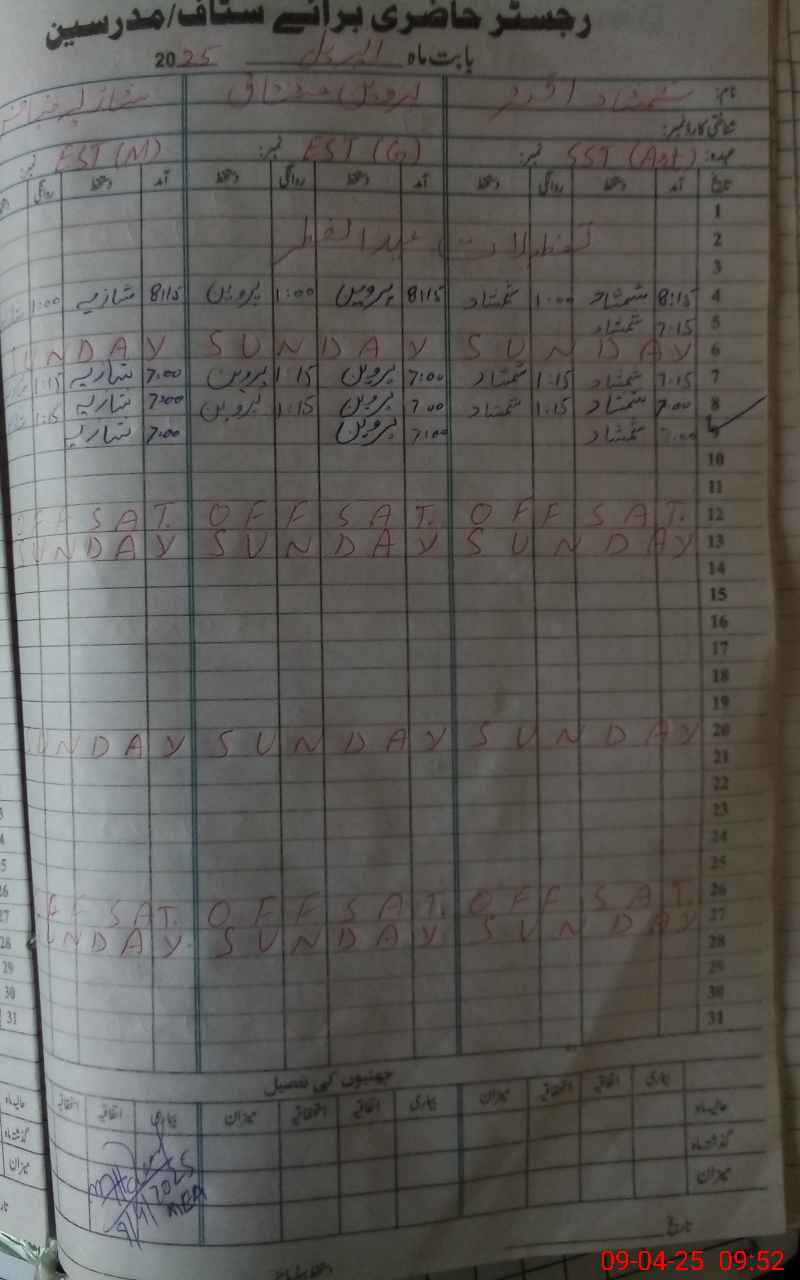 رجسٹر حاضری برائے سٹاف/مدرسین
بابت ماہ اپریل 2025
نام: شمشاد اختر پروین مشتاق شازیہ
شناختی کارڈ نمبر:
عہدہ: SST (Art) نمبر: EST (G) نمبر: EST (M) نمبر:
تاریخ آمد دستخط روانگی دستخط آمد دستخط روانگی دستخط آمد دستخط روانگی
1
2 تعطیلات عید الفطر
3
4 8:15 شمشاد 1:00 شمشاد 8:15 پروین 1:00 پروین 8:15 شازیہ 1:00
5 7:15 شمشاد
6 SUNDAY SUNDAY SUNDAY
7 7:15 شمشاد 1:15 شمشاد 7:00 پروین 1:15 پروین 7:00 شازیہ 1:15
8 7:00 شمشاد 1:15 شمشاد 7:00 پروین 1:15 پروین 7:00 شازیہ 1:15
9 7:00 شمشاد 7:00 پروین 7:00 شازیہ
10
11
12 OFF SAT. OFF SAT. OFF SAT.
13 SUNDAY SUNDAY SUNDAY
14
15
16
17
18
19
20 SUNDAY SUNDAY SUNDAY
21
22
23
24
25
26 OFF SAT. OFF SAT. FF SAT.
27 SUNDAY SUNDAY UNDAY
28
29
30
31
چھٹیوں کی تفصیل
بیماری اتفاقیہ استحقاقیہ میزان بیماری اتفاقیہ استحقاقیہ میزان بیماری اتفاقیہ استحقاقیہ
حالیہ ماہ
گذشتہ ماہ
میزان
9/4/2025
MEA
تاریخ
09-04-25 09:52